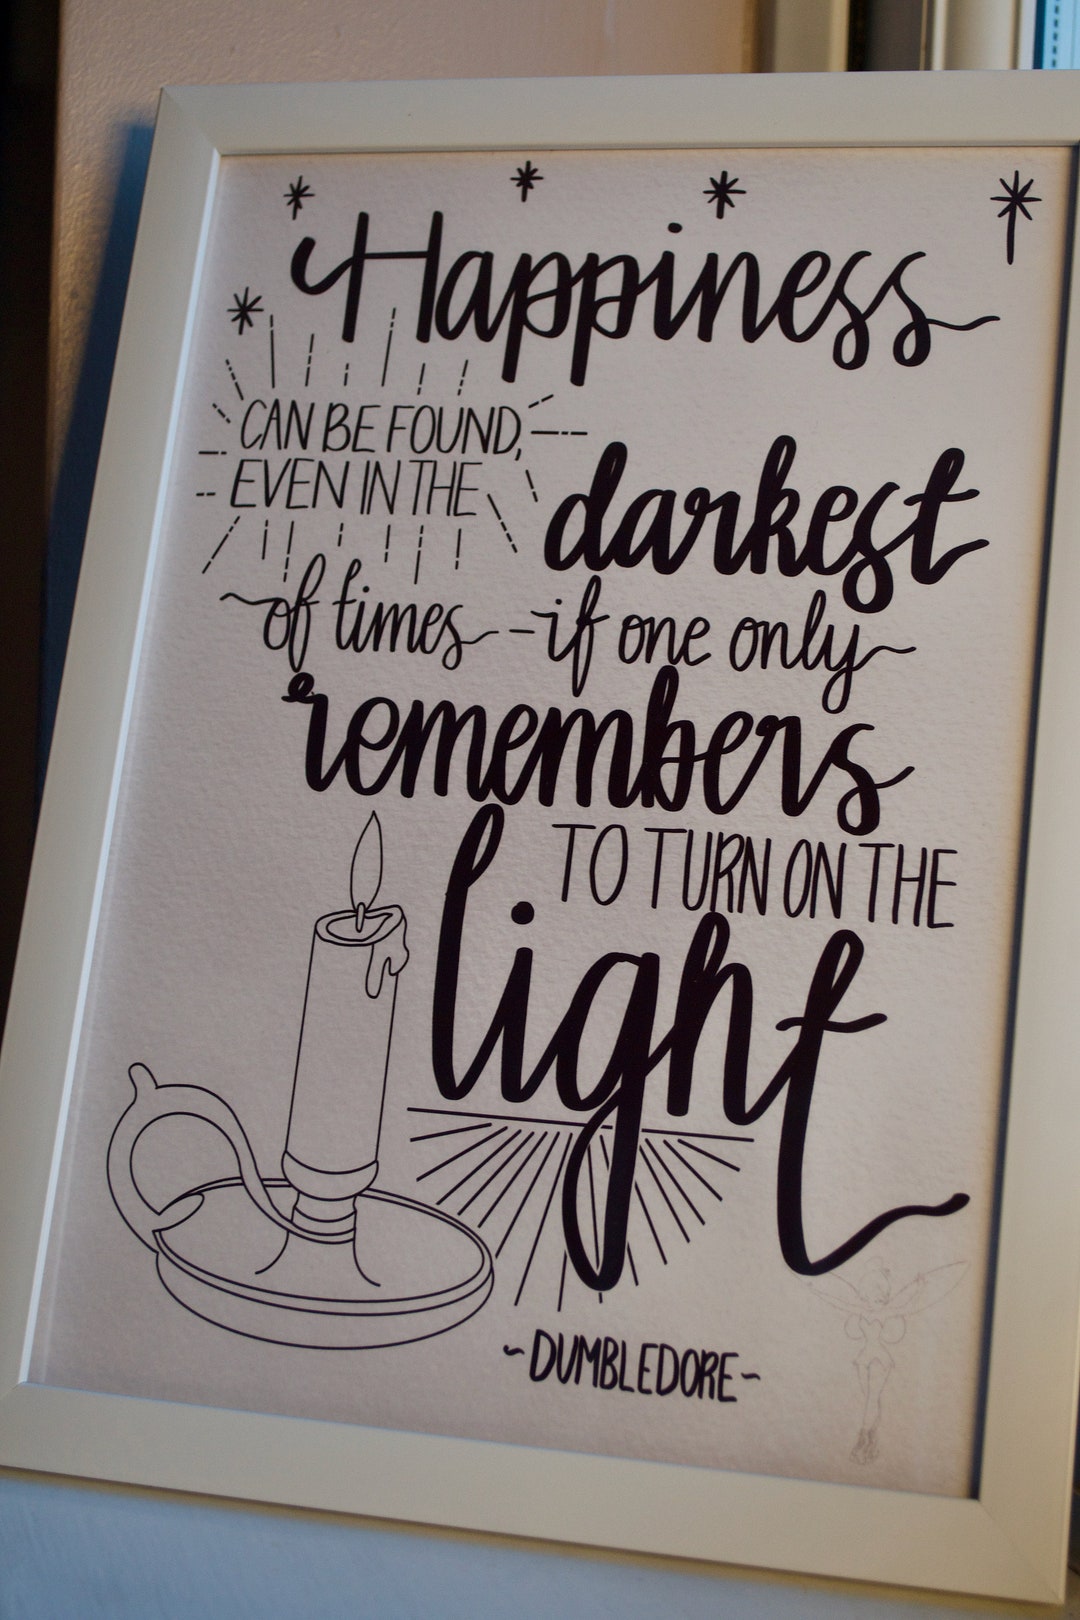 Happiness
CAN BE FOUND,
EVEN IN THE
darkest
of times - if one only
remembers
TO TURN ON THE
light
~DUMBLEDORE~